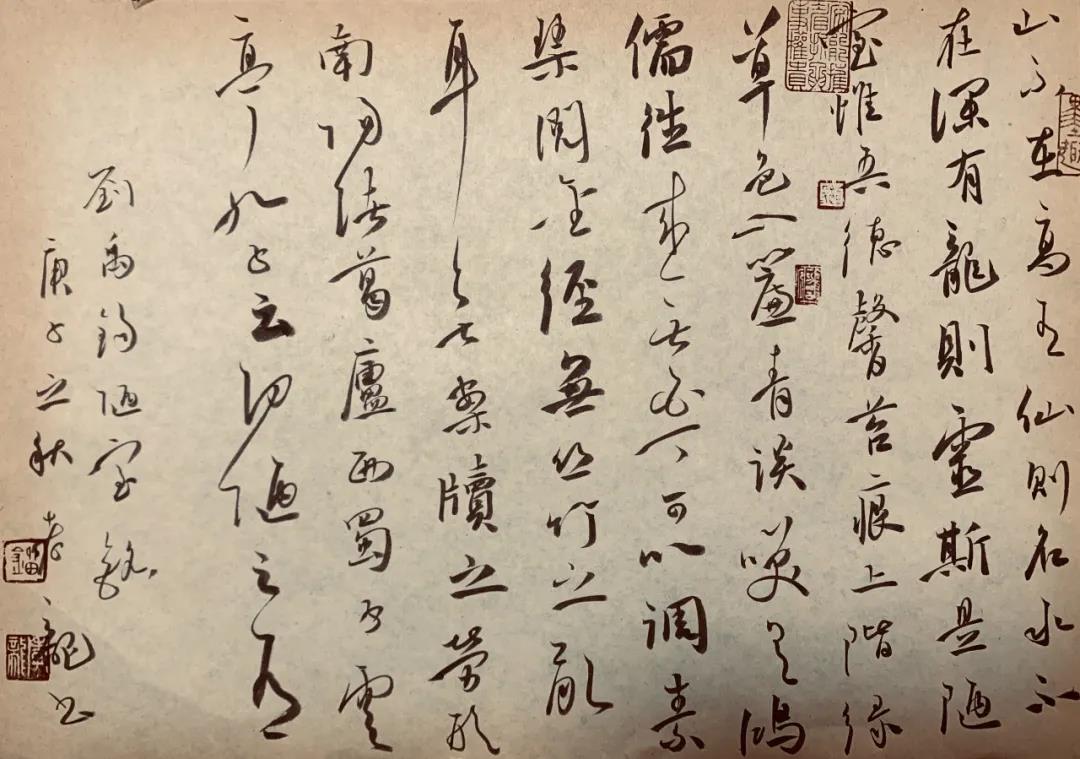 山不在高有仙則名水不
在深有龍則靈斯是陋
室惟吾德馨苔痕上階緑
草色入簾青談笑有鴻
儒往來無白丁可以調素
琴閱金經無丝竹之亂
耳無案牘之勞形
南陽諸葛廬西蜀子雲
亭孔子云何陋之有
劉禹錫陋室銘
庚子之秋龍书